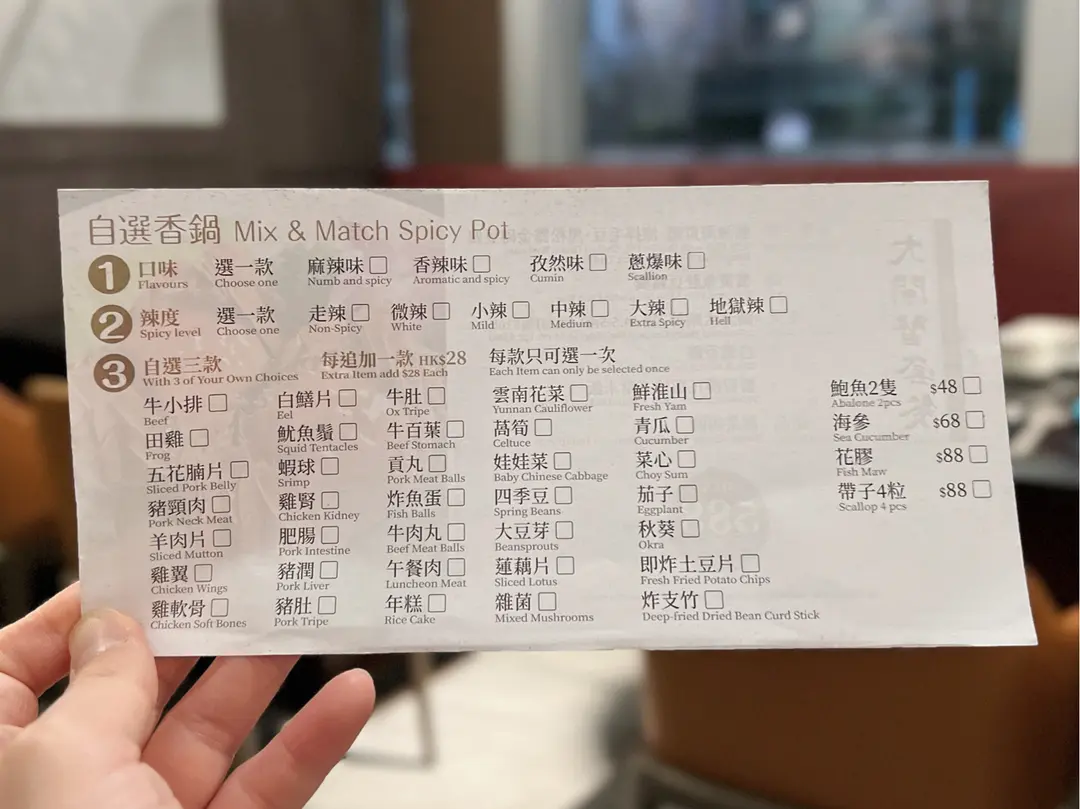 自選香鍋 Mix & Match Spicy Pot
1 口味 選一款 麻辣味 香辣味 孜然味 蔥爆味
Flavours Choose one Numb and spicy Aromatic and spicy Cumin Scallion
2 辣度 選一款 走辣 微辣 小辣 中辣 大辣 地獄辣
Spicy level Choose one Non-Spicy White Mild Medium Extra Spicy Hell
3 自選三款 每追加一款 HK$28 每款只可選一次
With 3 of Your Own Choices Extra Item add $28 Each Each Item can only be selected once
牛小排 白鱔片 牛肚 雲南花菜 鮮淮山 鮑魚2隻 $48
Beef Eel Ox Tripe Yunnan Cauliflower Fresh Yam Abalone 2pcs
田雞 魷魚鬚 牛百葉 萵筍 青瓜 海參 $68
Frog Squid Tentacles Beef Stomach Celtuce Cucumber Sea Cucumber
五花腩片 蝦球 貢丸 娃娃菜 菜心 花膠 $88
Sliced Pork Belly Srimp Pork Meat Balls Baby Chinese Cabbage Choy Sum Fish Maw
豬頸肉 雞腎 炸魚蛋 四季豆 茄子 帶子4粒 $88
Pork Neck Meat Chicken Kidney Fish Balls Spring Beans Eggplant Scallop 4 pcs
羊肉片 肥腸 牛肉丸 大豆芽 秋葵
Sliced Mutton Pork Intestine Beef Meat Balls Beansprouts Okra
雞翼 豬潤 午餐肉 蓮藕片 即炸土豆片
Chicken Wings Pork Liver Luncheon Meat Sliced Lotus Fresh Fried Potato Chips
雞軟骨 豬肚 年糕 雜菌 炸支竹
Chicken Soft Bones Pork Tripe Rice Cake Mixed Mushrooms Deep-fried Dried Bean Curd Stick